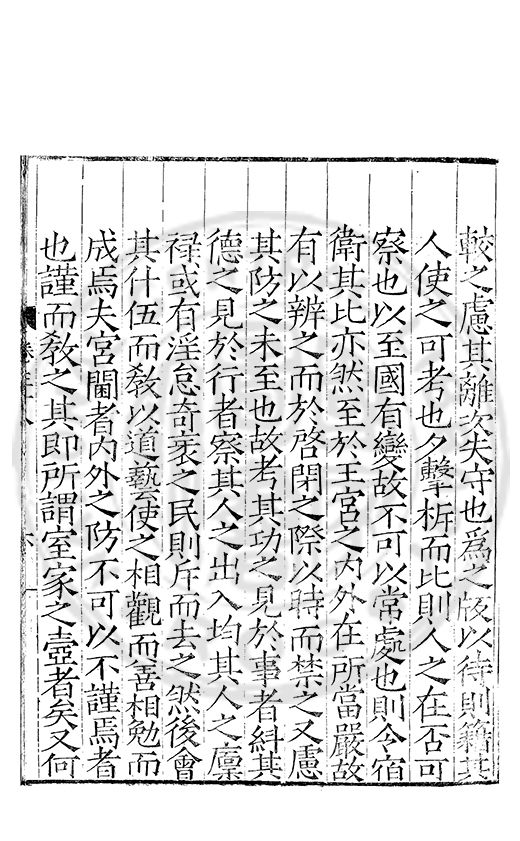 較之慮其離次失守也爲之版以待則籍其
人使之可考也夕擊柝而比則人之在否可
察也以至國有變故不可以常處也則令宿
衛其比亦然至於王宮之内外在所當嚴故
有以辨之而於啓閉之際以時而禁之又慮
其防之未至也故考其功之見於事者糾其
德之見於行者察其人之出入均其人之廩
禄或有淫怠奇衺之民則斥而去之然後會
其什伍而敎以道藝使之相觀而善相勉而
成焉夫宮闈者内外之防不可以不謹焉者
也謹而敎之其即所謂室家之壼者矣又何